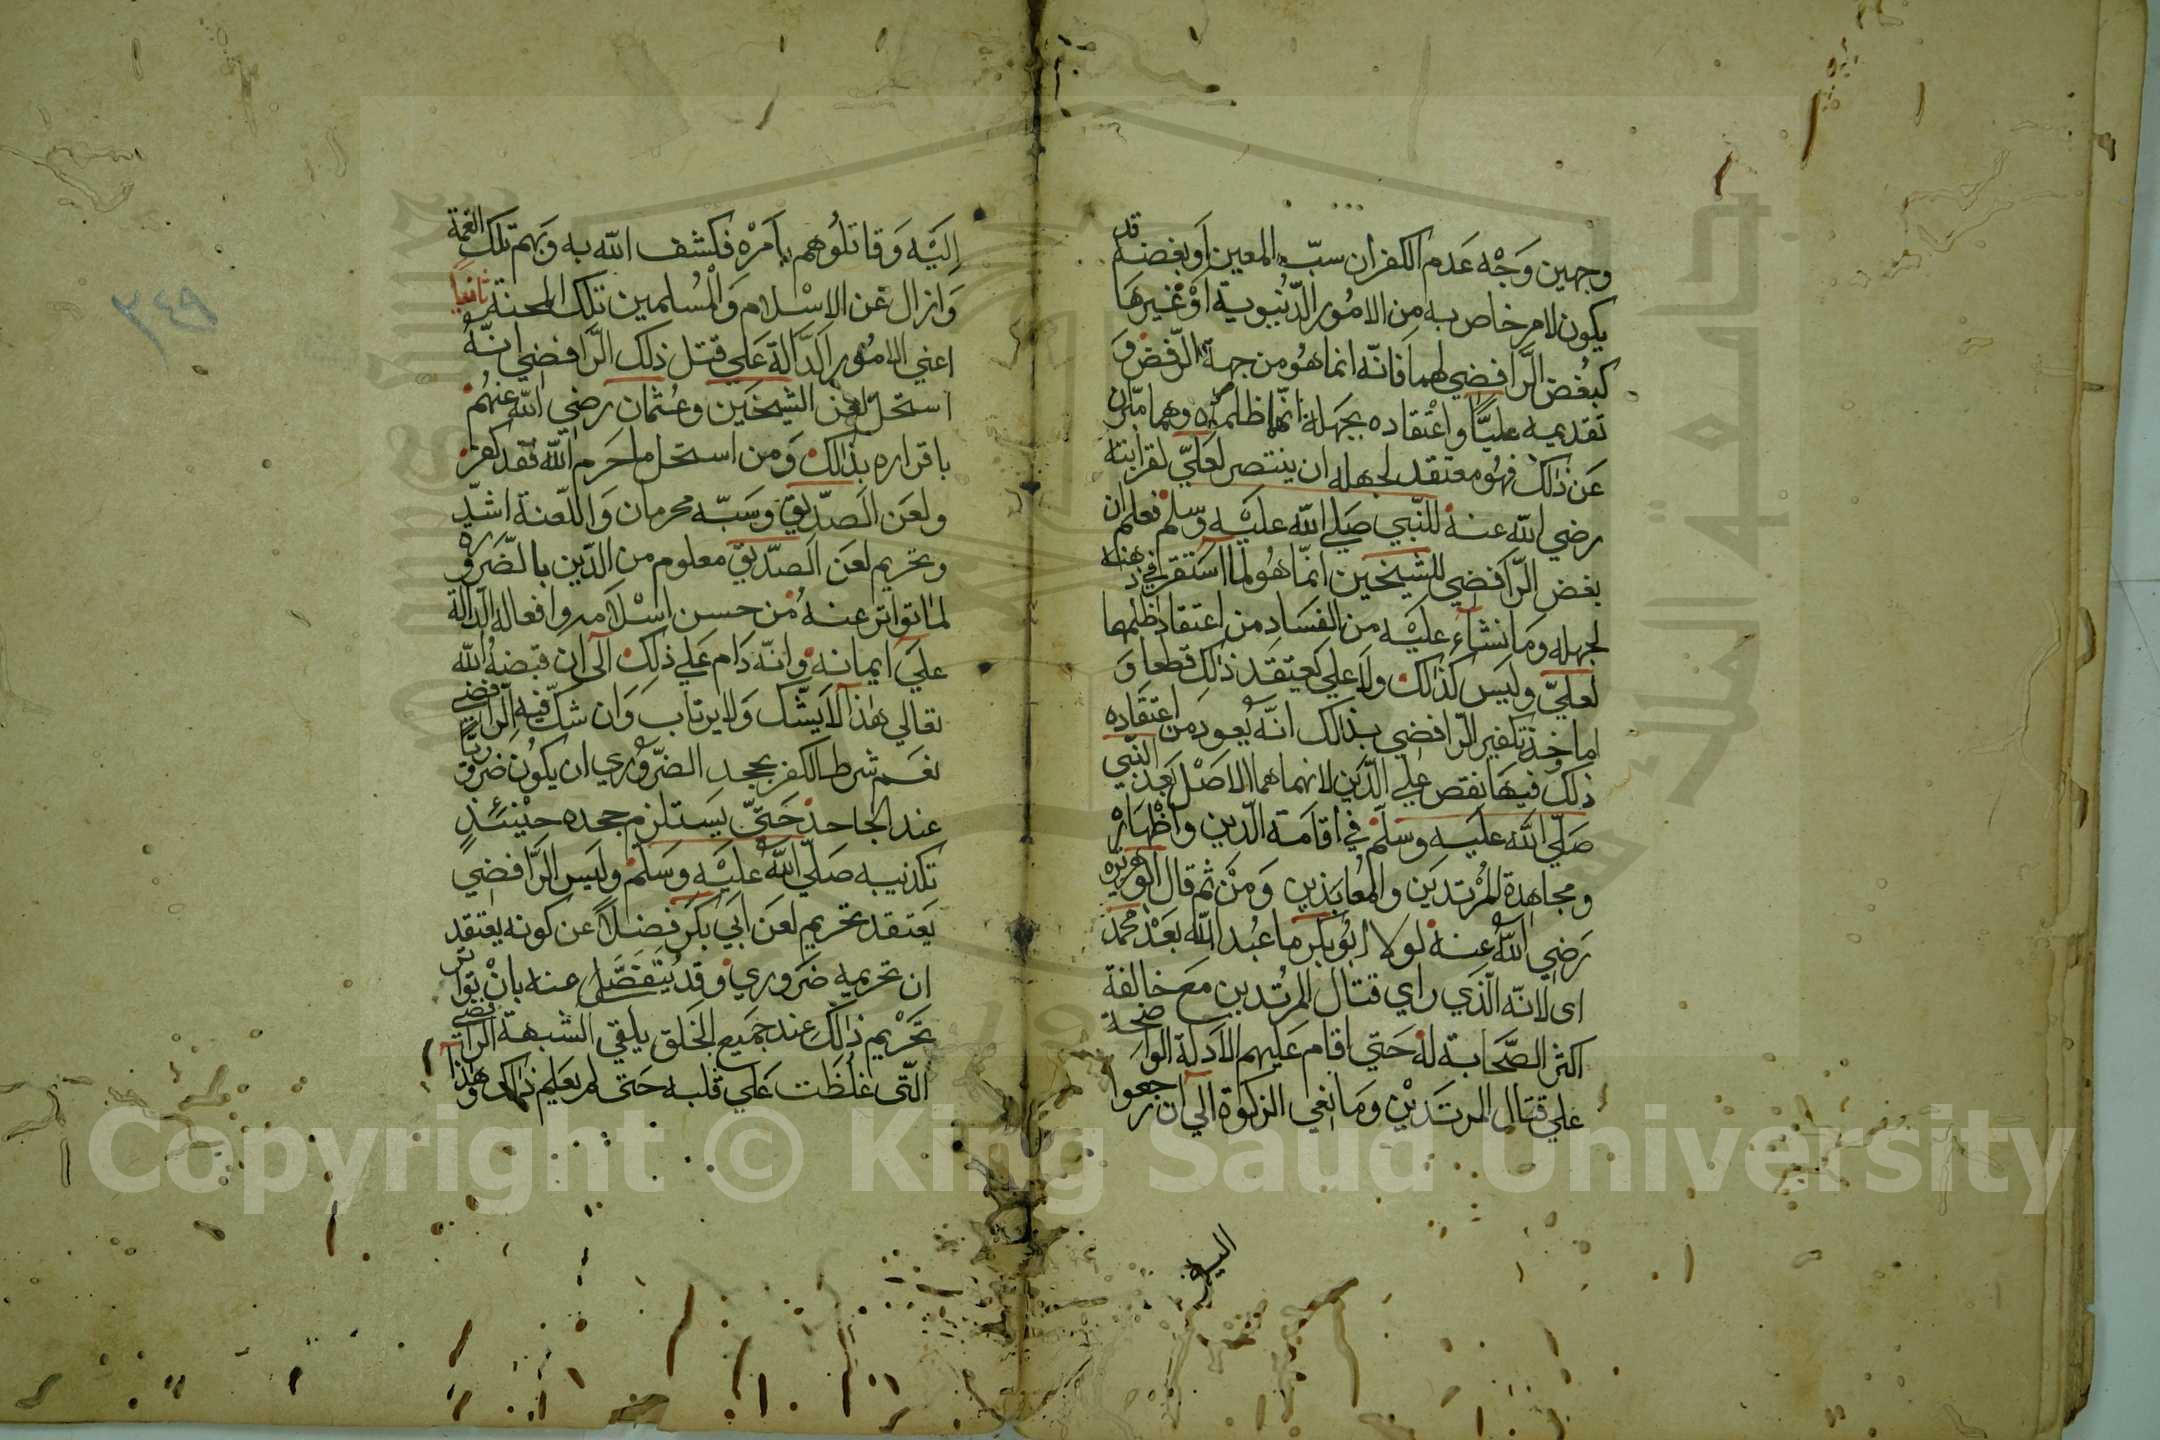 وجهين وَجْه عَدم الكفر ان سبّ المعين اَو بغضه قد
يكون لامر خاص به مِن الامُور الدّنيوية اَوْ غيرها
كبُغض الرَّافضي لهما فانّه انما هُو من جهة الرّفض وَ
تقديمه عليًّا واعْتقاده بجهله انهما ظلماه وهما مبّران
عَن ذلك فهُو معتقد لجهله ان ينتصر لعَليّ لقرابته
رضي الله عنه للنّبي صَلي الله عليْه وسلم فعلم ان
بغض الرّافضي للشيخَين انّما هُو لما استقر في ذهنه
لجهله وَما نشاء عليْه من الفسَاد من اعتقاد ظلمهما
لعليّ وليَس كذلك ولا علي يَعتِقَد ذلك قطعا وَ
ماخذ تكفير الرّافضي بذالك انّه يُعود من اعتقاده
ذلك فيهَا نقص علي الدّين لانهما هما الاصْل بَعد النّبي
صَلّي الله عليَه وسلّم في اقامَة الدّين واظْهَاره
ومجاهدة المُرْتدين والمُعاندين وَمِنْ ثم قال ابو هريره
رَضي اللهُ عنه لولا ابُو بكر ما عبُد الله بعَدْ محمد
اى لانّه الّذَي راي قتال المرتدين مَع مخالفة
اكثر الصّحَابة له حَتي اقام عَليهم الادلة الواضحة
علي قتال المرتدين وَمانعي الزكوة الي ان رجعوا
اليه
اِليَه وَقاتلُوهم بِاَمْره فكشف الله به وَبهم تلك الغمة
وَازال عَن الاسْلام وَالْمُسلمين تلك المحنة ثانيا
اعني الامُور الدَّالة عَلي قتل ذلك الرَّافضي انّهُ
استحلّ لعْن الشيخَين وعُثمان رضي الله عنهُمْ
باقراره بذالك وَمن استحل ما حَرم الله فقد كفر
ولعَن الصّدّيق وسَبّه محرمان وَاللّعنة اشدّ
وتحريم لعَن الصّدّيق معلوم من الدّين بالضّرَوره
لما تواتر عنهُ من حسن اسْلامه وافعاله الدالة
عليَ ايمانه وانّه دَام عَلي ذلك الى ان قبضهُ الله
تعالي هٰذا لاَ يَشّك وَلا يرتاب وَان شكّ فيه الرّافضي
نعَم شرط الكفر بجحد الضّرُوري ان يكوُن ضروريًّا
عند الجاحد حَتيّ يَستلزم جحده حيْنئذٍ
تكذيبه صَلّي اللهُ عليْه وسَلم وليَس الرّافضي
يَعتقد تحريم لعَن ابَي بَكر فضلاً عن كونه يعْتقد
ان تحريمه ضَروري وقد يُتفصّل عنه بانْ تواتر
تَحَرْيم ذٰلكَ عِند جمَيع الخَلق يلقي الشبهة الرافضي
الّتى غلُظَت عَلي قلبه حَتى لم يعَلم ذلك وهذا
٢٤٩
Copyright © King Saud University